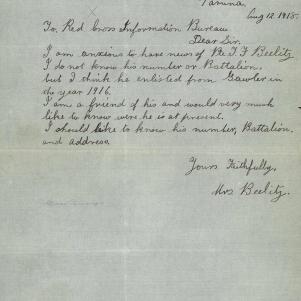 Tanunda.
Aug 12. 1918.
To, Red Cross Information Bureau,
Dear Sir.
I am anxious to have news of Pte T. F Beelitz
I do not know his number or Battalion,
but I think he enlisted from Gawler in
the year 1916.
I am a friend of his and would very much
like to know were he is at present.
I should like to know his number, Battalion,
and address.
Yours Faithfully,
Mrs Beelitz.